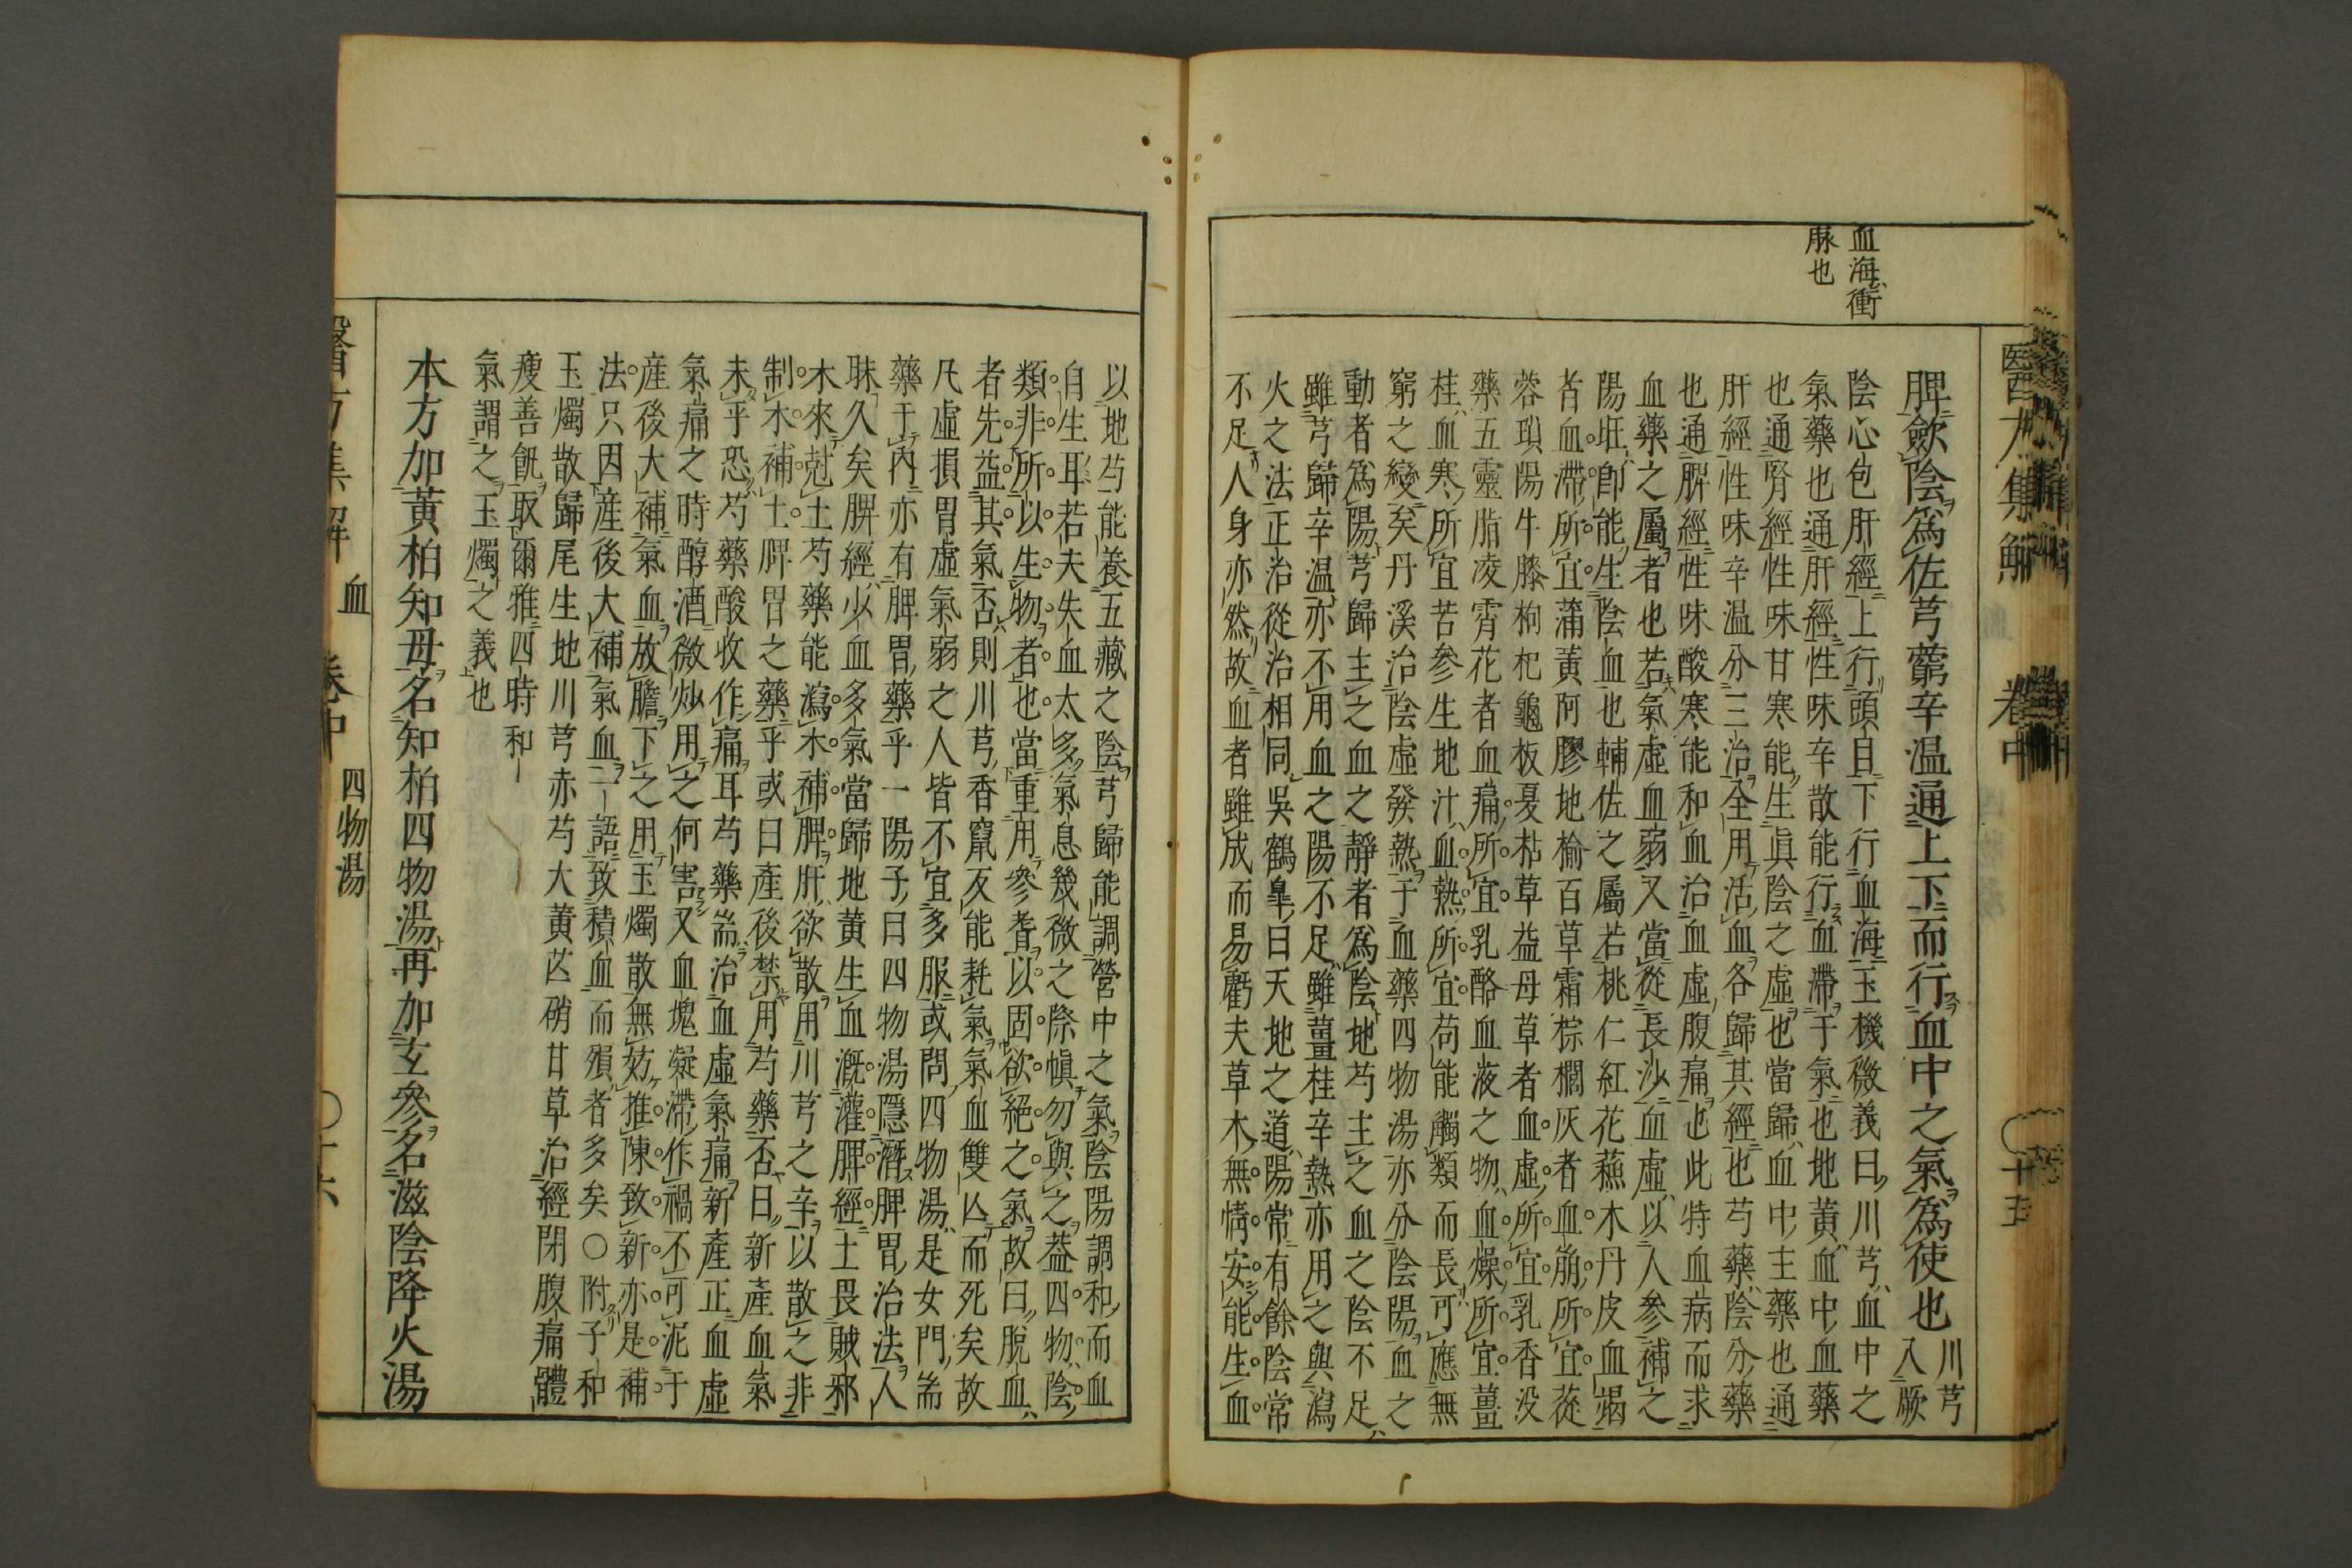 血海衝
脉也
醫方集解
卷中
十五
脾歛陰爲佐芎藭辛温通上下而行血中之氣爲使也川芎入厥
陰心包肝經上行頭目下行血海玉機微義曰川芎血中之
氣藥也通肝經性味辛散能行血滯于氣也地黄血中血藥
也通腎經性味甘寒能生眞陰之虚也當歸血中主藥也通
肝經性味辛温分三治全用活血各歸其經也芍藥陰分藥
也通脾經性味酸寒能和血治血虚腹痛也此特血病而求
血藥之屬者也若氣虚血弱又當從長沙血虚以人參補之
陽旺卽能生陰血也輔佐之屬若桃仁紅花蘓木丹皮血竭
者血滯所宜蒲黄阿膠地榆百草霜棕櫚灰者血崩所宜蓯
蓉瑣陽牛膝枸杞龜板夏枯草益母草者血虚所宜乳香没
藥五靈脂凌霄花者血痛所宜乳酪血液之物血燥所宜薑
桂血寒所宜苦參生地汁血熱所宜苟能觸類而長可應無
窮之變矣丹溪治陰虚發熱于血藥四物湯亦分陰陽血之
動者爲陽芎歸主之血之靜者爲陰地芍主之血之陰不足
雖芎歸辛温亦不用血之陽不足雖薑桂辛熱亦用之與瀉
火之法正治從治相同吳鶴臯曰天地之道陽常有餘陰常
不足人身亦然故血者難成而易虧夫草木無情安能生血
以地芍能養五藏之陰芎歸能調營中之氣陰陽調和而血
自生耳若夫失血太多氣息幾微之際愼勿與之葢四物陰
類非所以生物者也當重用參耆以固欲絕之氣故曰脫血
者先益其氣否則川芎香竄反能耗氣氣血雙亾而死矣故
凡虚損胃虚氣弱之人皆不宜多服或問四物湯是女門耑
藥于内亦有脾胃藥乎一陽子曰四物湯隱濟脾胃治法人
昧久矣脾經少血多氣當歸地黄生血漑灌脾經土畏賊邪
木來尅土芍藥能瀉木補脾肝欲散用川芎之辛以散之非
制木補土脾胃之藥乎或曰產後禁用芍藥否曰新產血氣
未平恐芍藥酸收作痛耳芍藥耑治血虚氣痛新產正血虚
氣痛之時醇酒微炒用之何害又血塊凝滯作禍不可泥于
產後大補氣血放膽下之用玉燭散無妨推陳致新亦是補
法只因產後大補氣血二語致積血而殞者多矣○附子和
玉燭散歸尾生地川芎赤芍大黄芒硝甘草治經閉腹痛體
瘦善飢取爾雅四時和
氣謂之玉燭之義也
本方加黄柏知母名知柏四物湯再加玄參名滋陰降火湯
醫方集解 血 卷中 四物湯
十六